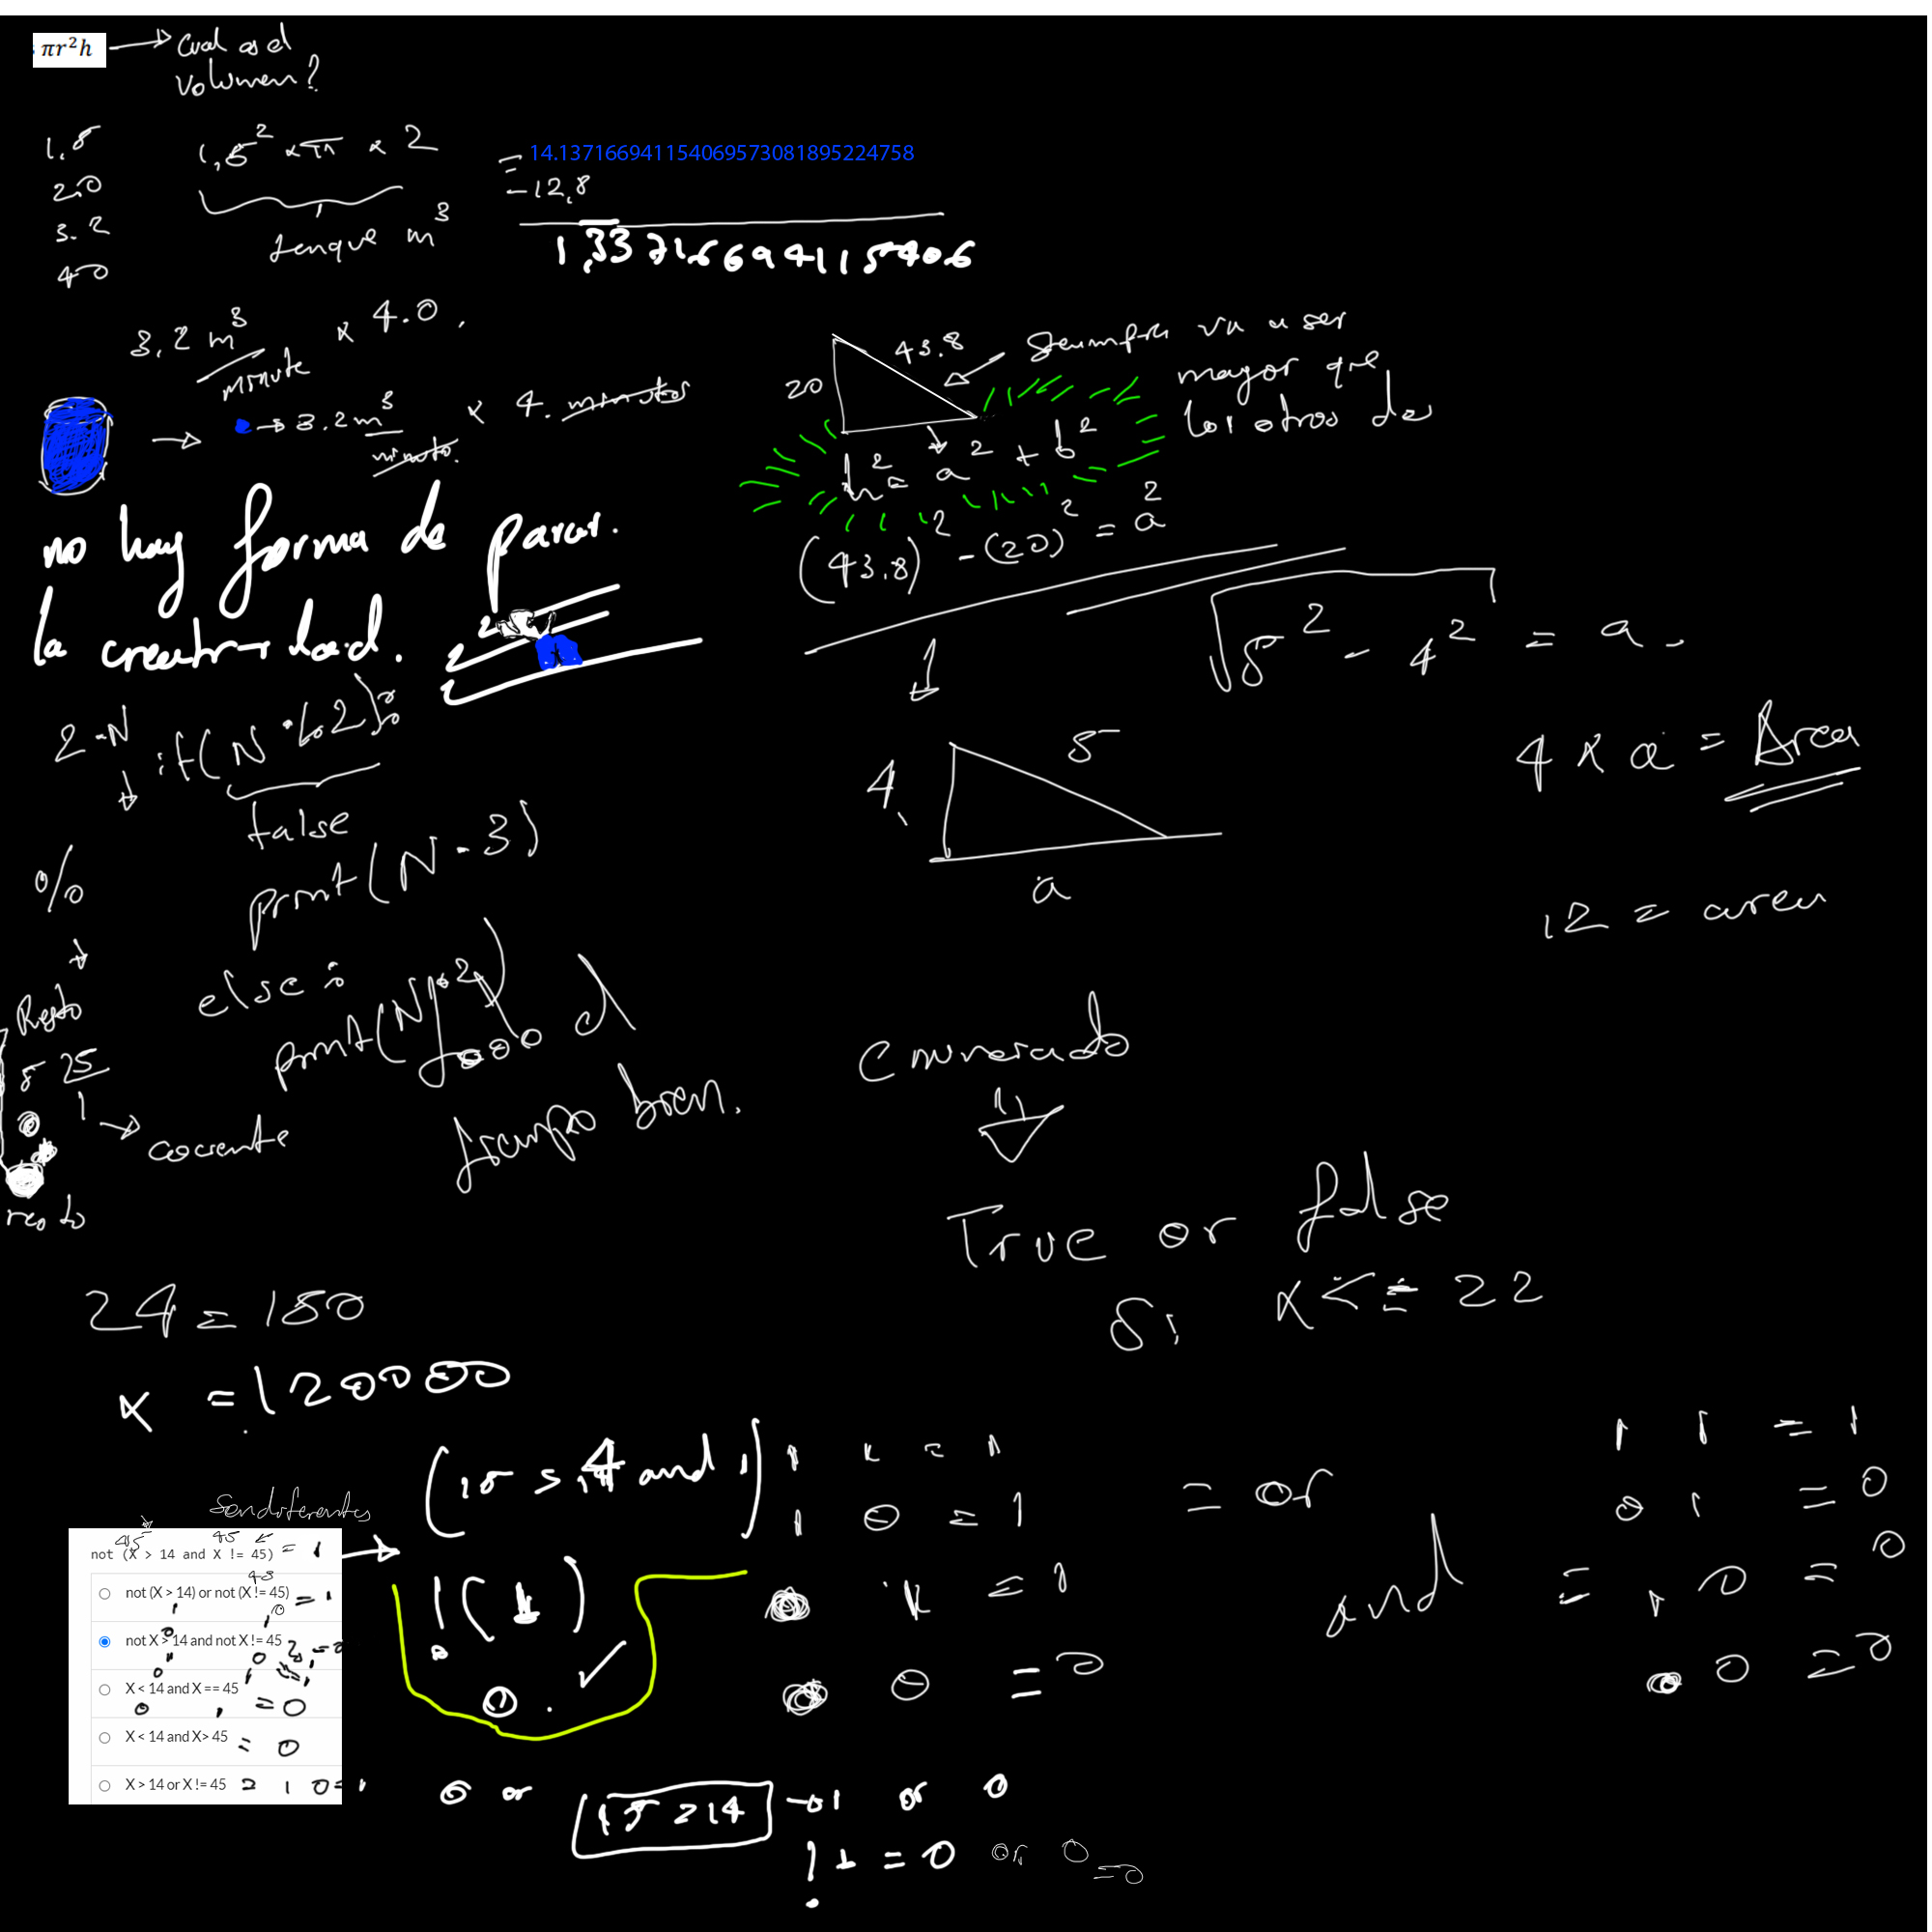 πr²h → Cual es el
volumen?
1,5
2.0
3.2
4.0
1,5² × π × 2
tanque m³
= 14.137166941154069573081895224758
- 12,8
1,33716694115406
3.2 m³ / minute × 4.0
→ 3.2 m³ / minuto. × 4. minutos
no hay forma de parar
la creatividad.
20
43.8
Siempre va a ser
mayor que
los otros dos
h² = a² + b²
(43.8)² - (20)² = a²
√5² - 4² = a
4
5
a
4 × a = Area
12 = area
2-N
if(N % 2):
false
print(N-3)
else:
print(N/2)
%
Resto
5 25
1 → cociente
resto
tiempo bien.
enunciado
True or false
Si x <= 22
24 = 180
x = 120000
Son diferentes
45 45
not (X > 14 and X != 45) = 1
not (X > 14) or not (X != 45) = 1
not X > 14 and not X != 45
X < 14 and X == 45
0 1 = 0
X < 14 and X > 45 = 0
X > 14 or X != 45 = 1 0 = 1
!(1)
0. ✓
1 1 = 1
1 0 = 1
1 = 1
0 = 0
= or
and =
1 1 = 1
0 1 = 0
1 0 = 0
0 = 0
0 or
→ 1 or 0
!1 = 0 or 0 = 0